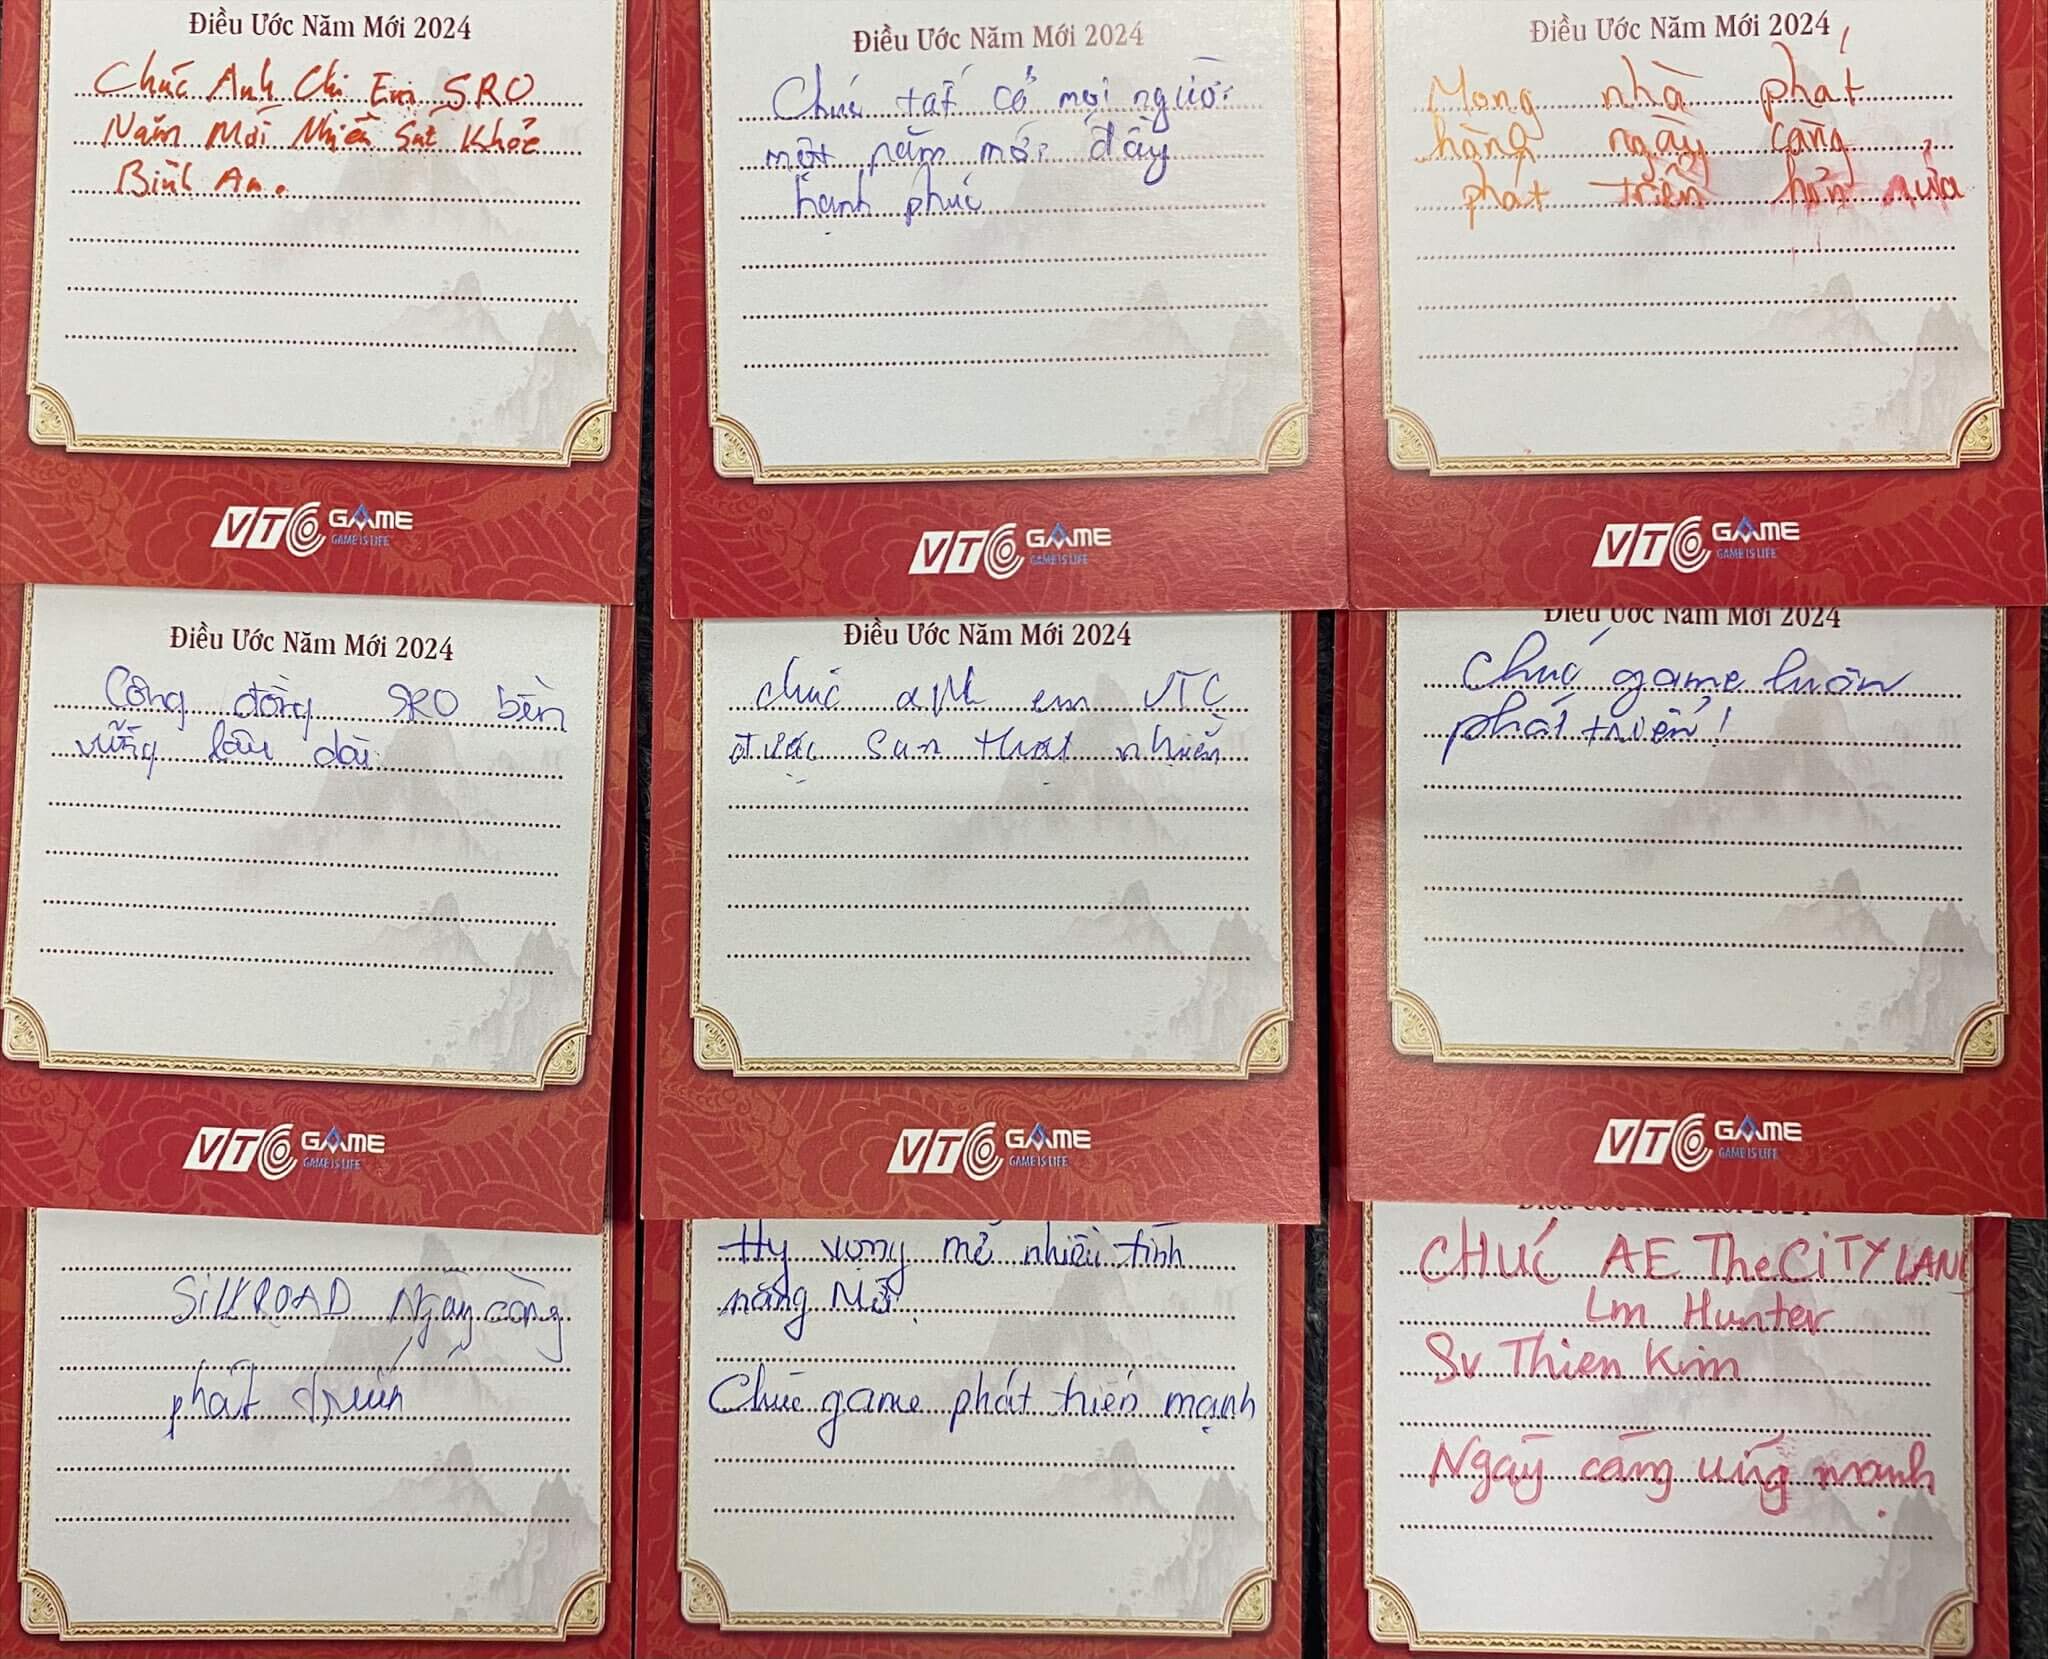 Điều Ước Năm Mới 2024
Chúc Anh Chi Em SRO
Năm Mới Nhiều Sức Khỏe
Bình An.
VTC GAME
GAME IS LIFE
Điều Ước Năm Mới 2024
Chúc tất cả mọi người
một năm mới đầy
hạnh phúc
VTC GAME
GAME IS LIFE
Điều Ước Năm Mới 2024
Mong nhà phát
hàng ngày càng
phát triển hơn nửa
VTC GAME
GAME IS LIFE
Điều Ước Năm Mới 2024
Cộng đồng SRO bền
vững lâu dài.
VTC GAME
GAME IS LIFE
Điều Ước Năm Mới 2024
chúc anh em VTC
được săn thật nhiều
VTC GAME
GAME IS LIFE
Điều Ước Năm Mới 2024
Chúc game luôn
phát triển!
VTC GAME
GAME IS LIFE
SILKROAD Ngày càng
phát triển
Hy vọng mở nhiều tính
năng Mới.
Chúc game phát triển mạnh
Điều Ước Năm Mới 2024
CHÚC AE TheCiTYLAND
Lm Hunter
Sv Thien Kim
Ngày càng ửng mạnh